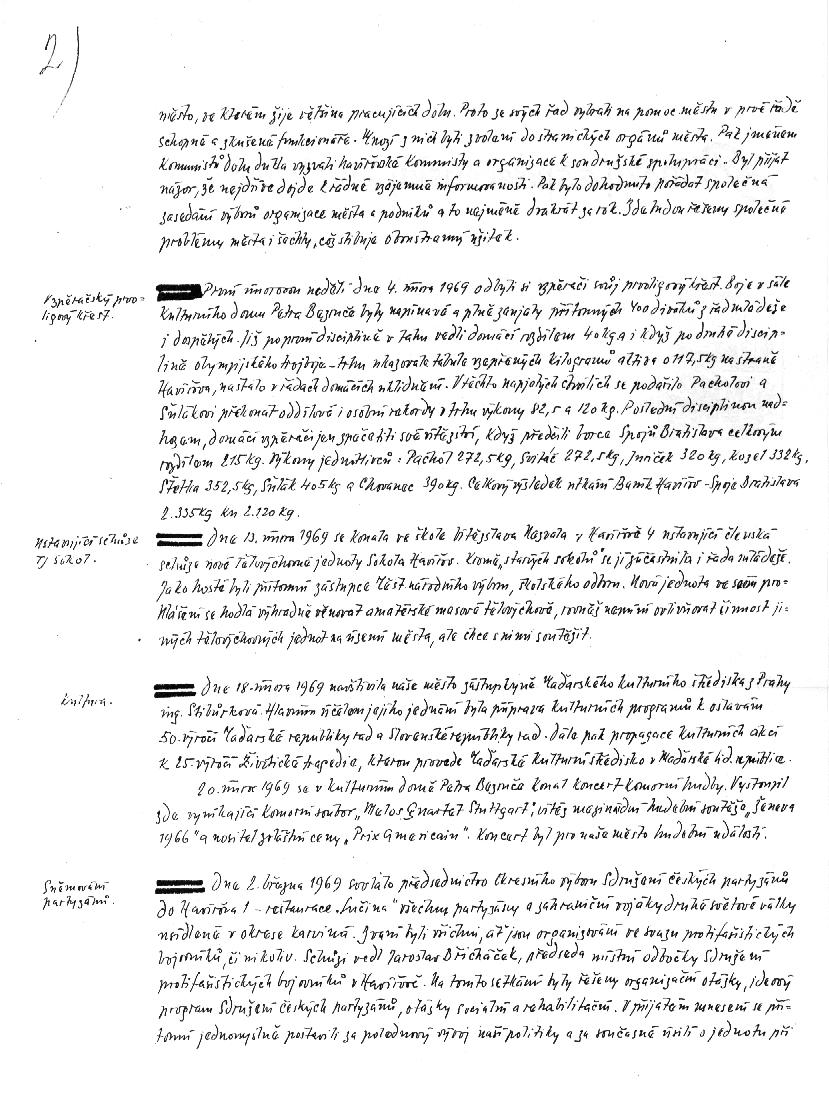 2)
město, ve kterém žije většina pracujících dolu. Proto ze svých řad vybrali na pomoc městu v prvé řadě
schopné a zkušené funkcionáře. Mnozí z nich byli zvoleni do stranických orgánů města. Pak jménem
komunistů dolu Dukla vyzvali havířovské komunisty a organizace k soudružské spolupráci. Byl přijat
názor, že nejdříve dojde k řádné vzájemné informovanosti. Pak bylo dohodnuto pořádat společná
zasedání výborů organizace města a podniků a to nejméně dvakrát za rok. Zde budou řešeny společné
problémy města i šachty, což slibuje oboustranný užitek.
Vzpěračský prvo=
ligový křest.
První únorovou neděli dne 4. února 1969 odbyli si vzpěrači svůj prvoligový křest. Boje v sále
kulturního domu Petra Bezruče byly napínavé a plně zaujaly přítomných 400 diváků z řad mládeže
i dospělých. Již po první disciplině v tahu vedli domácí rozdílem 40 kg a i když po druhé discip=
líně olympijského trojboje - trhu ukazovala tabule vzepřených kilogramů již za 0 117,5 kg na straně
Havířova, nastalo v řadách domácích uklidnění. V těchto napjatých chvílích se podařilo Pacholovi a
Srlákovi překonat oddílové i osobní rekordy v trhu výkony 82,5 a 120 kg. Poslední disciplinou nad=
hozem, domácí vzpěrači jen zpečetili své vítězství, když předčili borce Spojů Bratislava celkovým
rozdílem 215 kg. Výkony jednotlivců: Pachol 272,5 kg, Sviták 272,5 kg, Juříček 320 kg, Kozel 332 kg,
Stetka 352,5 kg, Srlák 405 kg a Chovanec 390 kg. Celkový výsledek utkání Baník Havířov - Spoje Bratislava
2.335 kg ku 2.120 kg.
Ustavující schůze
TJ Sokol.
Dne 13. února 1969 se konala ve škole Vítězslava Nezvala v Havířově 4 ustavující členská
schůze nové tělovýchovné jednoty Sokola Havířov. Kromě „starých sokolů" se jí zúčastnila i řada mládeže.
Jako hosté byli přítomni zástupce Měst. národního výboru, školského odboru. Nová jednota ve svém pro=
hlášení se hodlá výhradně věnovat amatérské masové tělovýchově, rovněž nemíní ovlivňovat činnost ji=
ných tělovýchovných jednot na území města, ale chce s nimi soutěžit.
Kultura.
Dne 18. února 1969 navštívila naše město zástupkyně Maďarského kulturního střediska z Prahy
ing. Stibůrková. Hlavním účelem jejího jednání byla příprava kulturních programů k oslavám
50. výročí Maďarské republiky rad a Slovenské republiky rad. Dále pak propagace kulturních akcí
k 25. výročí Životické tragedie, kterou provede Maďarské kulturní středisko v Maďarské lid. republice.
20. února 1969 se v kulturním domě Petra Bezruče konal koncert komorní hudby. Vystoupil
zde vynikající komorní soubor „Melos Quartet Stuttgart", vítěz mezinárodní hudební soutěže „Ženeva
1966" a nositel zvláštní ceny „Prix Americain". Koncert byl pro naše město hudební událostí.
Sněmování
partyzánů.
Dne 2. března 1969 svolalo předsednictvo Okresního výboru Sdružení českých partyzánů
do Havířova 1 - restaurace „Lučina" všechny partyzány a zahraniční vojáky druhé světové války
usídlené v okrese Karviná. Zváni byli všichni, ať jsou organizováni ve svazu protifašistických
bojovníků, či nikoliv. Schůzi vedl Jaroslav Břicháček, předseda místní odbočky Sdružení
protifašistických bojovníků v Havířově. Na tomto setkání byly řešeny organizační otázky, ideový
program Sdružení českých partyzánů, otázky sociální a rehabilitační. V přijatém usnesení se pří=
tomní jednomyslně postavili za polednový vývoj naší politiky a za současné úsilí o jednotu při